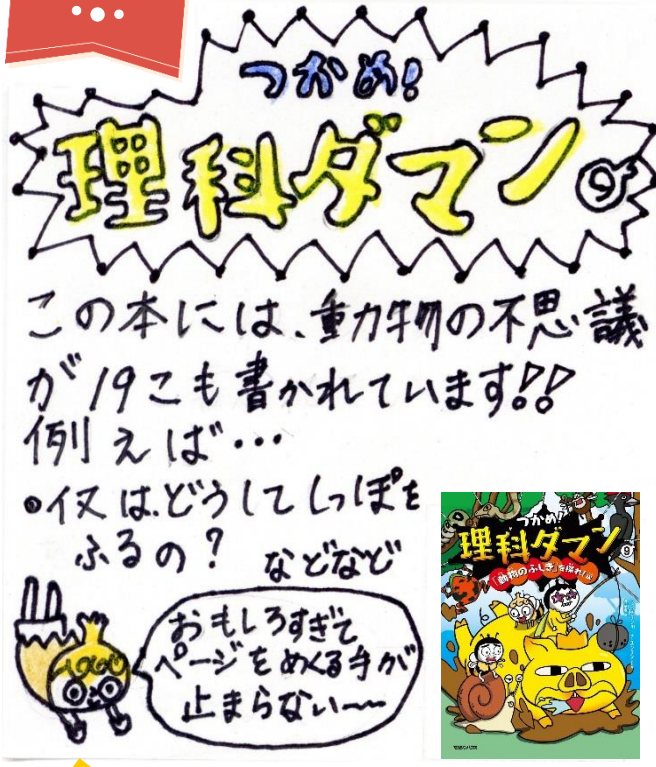 つかめ!
理科ダマン⑨
この本には、動物の不思議
が19こも書かれています!!
例えば…
•イヌはどうしてしっぽを
ふるの？ などなど
おもしろすぎて
ページをめくる手が
止まらない〜〜
つかめ!
理科ダマン
9
「動物のふしぎ」を探れ!編
マガジンハウス